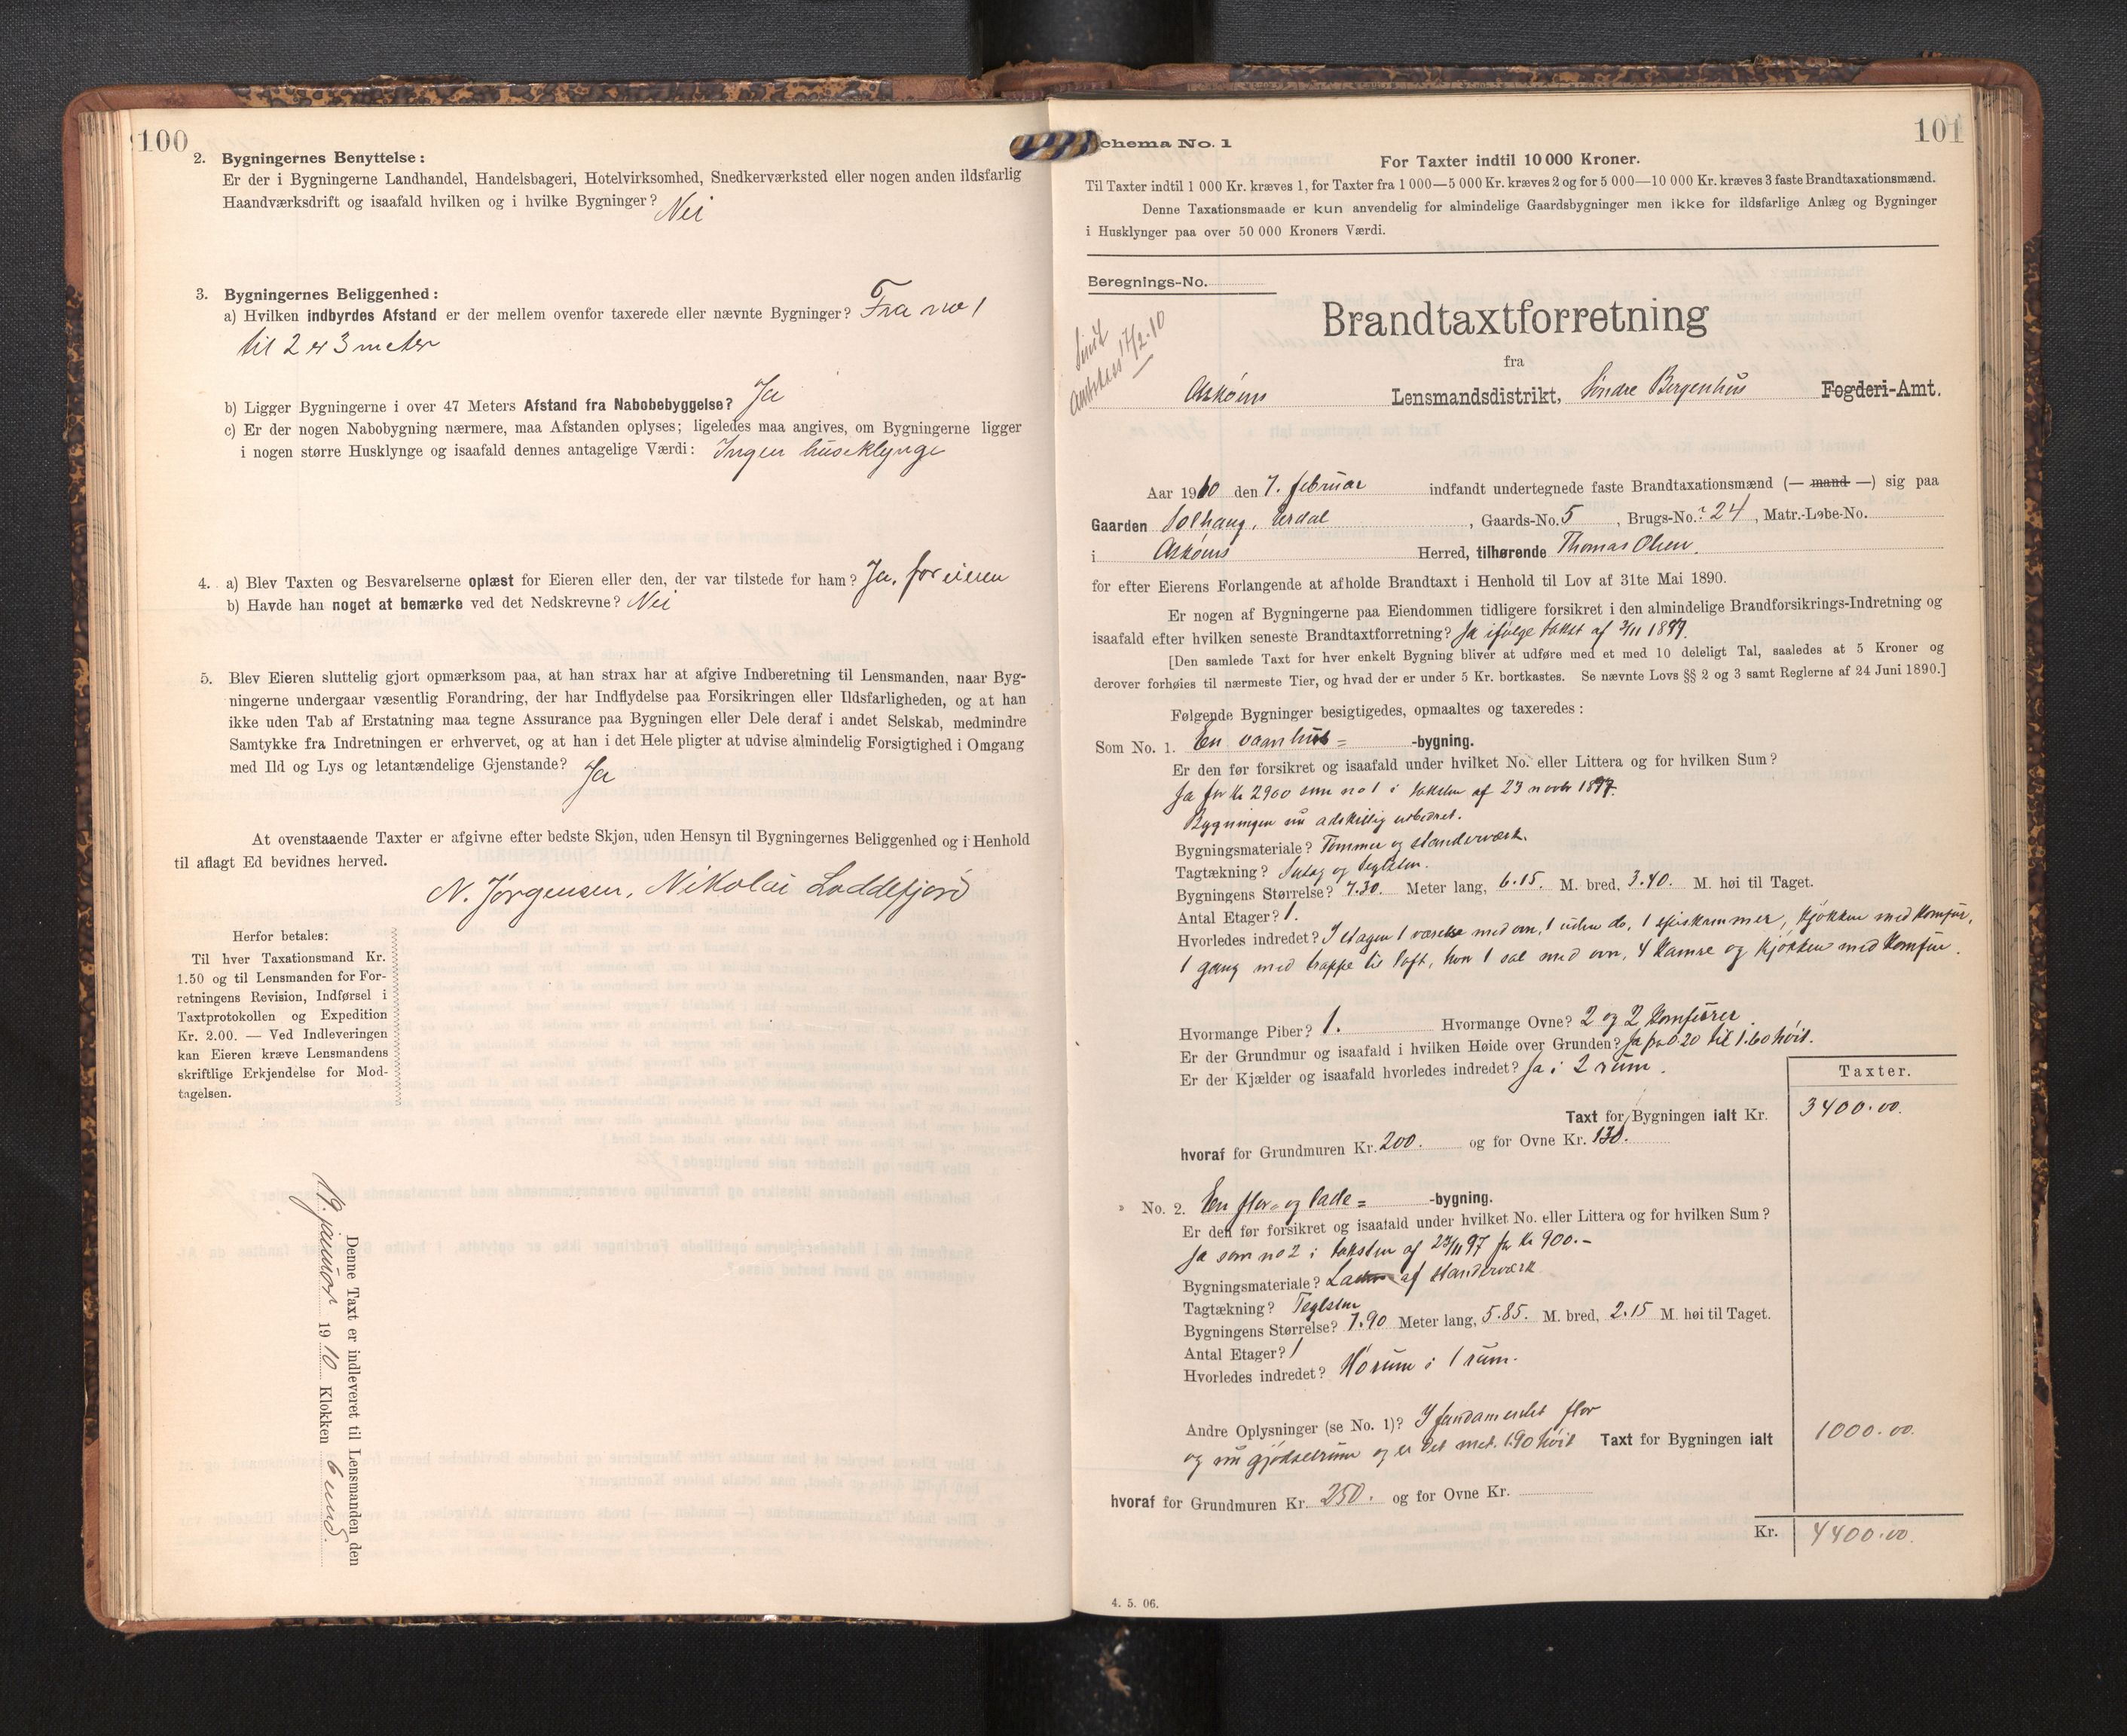 100
2. Bygningernes Benyttelse:
Er der i Bygningerne Landhandel, Handelsbageri, Hotelvirksomhed, Snedkerværksted eller nogen anden ildsfarlig
Haandværksdrift og isaafald hvilken og i hvilke Bygninger? Nei
3. Bygningernes Beliggenhed:
a) Hvilken indbyrdes Afstand er der mellem ovenfor taxerede eller nævnte Bygninger? Fra no 1
til 2 er 3 meter
b) Ligger Bygningerne i over 47 Meters Afstand fra Nabobebyggelse? Ja
c) Er der nogen Nabobygning nærmere, maa Afstanden oplyses; ligeledes maa angives, om Bygningerne ligger
i nogen større Husklynge og isaafald dennes antagelige Værdi: Ingen huseklynge
4. a) Blev Taxten og Besvarelserne oplæst for Eieren eller den, der var tilstede for ham? Ja, for eieren
b) Havde han noget at bemærke ved det Nedskrevne? Nei
5. Blev Eieren sluttelig gjort opmærksom paa, at han strax har at afgive Indberetning til Lensmanden, naar Byg-
ningerne undergaar væsentlig Forandring, der har Indflydelse paa Forsikringen eller Ildsfarligheden, og at han
ikke uden Tab af Erstatning maa tegne Assurance paa Bygningen eller Dele deraf i andet Selskab, medmindre
Samtykke fra Indretningen er erhvervet, og at han i det Hele pligter at udvise almindelig Forsigtighed i Omgang
med Ild og Lys og letantændelige Gjenstande? Ja
At ovenstaaende Taxter er afgivne efter bedste Skjøn, uden Hensyn til Bygningernes Beliggenhed og i Henhold
til aflagt Ed bevidnes herved.
N. Jørgensen, Nikolai Loddefjord
Herfor betales:
Til hver Taxationsmand Kr.
1.50 og til Lensmanden for For-
retningens Revision, Indførsel i
Taxtprotokollen og Expedition
Kr. 2.00. — Ved Indleveringen
kan Eieren kræve Lensmandens
skriftlige Erkjendelse for Mod-
tagelsen.
Denne Taxt er indleveret til Lensmanden den
19. januar 1910 Klokken 6 emd.
101
Schema No. 1
For Taxter indtil 10 000 Kroner.
Til Taxter indtil 1 000 Kr. kræves 1, for Taxter fra 1 000—5 000 Kr. kræves 2 og for 5 000—10 000 Kr. kræves 3 faste Brandtaxationsmænd.
Denne Taxationsmaade er kun anvendelig for almindelige Gaardsbygninger men ikke for ildsfarlige Anlæg og Bygninger
i Husklynger paa over 50 000 Kroners Værdi.
Beregnings-No.
17/2.10
Brandtaxtforretning
fra
Askøens Lensmandsdistrikt, Søndre Bergenhus Fogderi-Amt.
Aar 1910 den 7. februar indfandt undertegnede faste Brandtaxationsmænd (— mand —) sig paa
Gaarden Solhaug, Erdal, Gaards-No. 5, Brugs-No. 24, Matr.-Løbe-No.
i Askøens Herred, tilhørende Thomas Olsen.
for efter Eierens Forlangende at afholde Brandtaxt i Henhold til Lov af 31te Mai 1890.
Er nogen af Bygningerne paa Eiendommen tidligere forsikret i den almindelige Brandforsikrings-Indretning og
isaafald efter hvilken seneste Brandtaxtforretning? Ja ifølge takst af 1897.
[Den samlede Taxt for hver enkelt Bygning bliver at udføre med et med 10 deleligt Tal, saaledes at 5 Kroner og
derover forhøies til nærmeste Tier, og hvad der er under 5 Kr. bortkastes. Se nævnte Lovs §§ 2 og 3 samt Reglerne af 24 Juni 1890.]
Følgende Bygninger besigtigedes, opmaaltes og taxeredes:
Som No. 1. En vaanhus= -bygning.
Er den før forsikret og isaafald under hvilket No. eller Littera og for hvilken Sum?
Ja for kr 2900 som no 1 i taksten af 23 novbr 1897.
Bygningen nu adskillig udbedret.
Bygningsmateriale? Tømmer og standerværk.
Tagtækning? Sutag og teglsten.
Bygningens Størrelse? 7.30. Meter lang, 6.15. M. bred, 3.40. M. høi til Taget.
Antal Etager? 1.
Hvorledes indredet? I etagen 1 værelse med ovn, 1 uden do, 1 spiskammer, kjøkken med komfur,
1 gang med trappe til loft, hvor 1 sal med ovn, 4 kamre og kjøkken med komfur.
Hvormange Piber? 1. Hvormange Ovne? 2 og 2 komfurer.
Er der Grundmur og isaafald i hvilken Høide over Grunden? Ja fra 0.20 til 1.60 høit.
Er der Kjælder og isaafald hvorledes indredet? Ja i 2 rum.
Taxter.
Taxt for Bygningen ialt Kr. 3400.00.
hvoraf for Grundmuren Kr. 200. og for Ovne Kr. 130.
No. 2. En flor- og lade= -bygning.
Er den før forsikret og isaafald under hvilket No. eller Littera og for hvilken Sum?
Ja som no 2 i taksten af 23/11 97 for kr 900.-
Bygningsmateriale? Laden af standerværk
Tagtækning? Teglsten
Bygningens Størrelse? 7.90 Meter lang, 5.85. M. bred, 2.15 M. høi til Taget.
Antal Etager? 1
Hvorledes indredet? Hørum i 1 rum.
Andre Oplysninger (se No. 1)? I fundamentet flor
og nu gjødselrum og er det met. 1.90 høit Taxt for Bygningen ialt 1000.00.
hvoraf for Grundmuren Kr. 250. og for Ovne Kr.
Kr. 4400.00.
4. 5. 06.